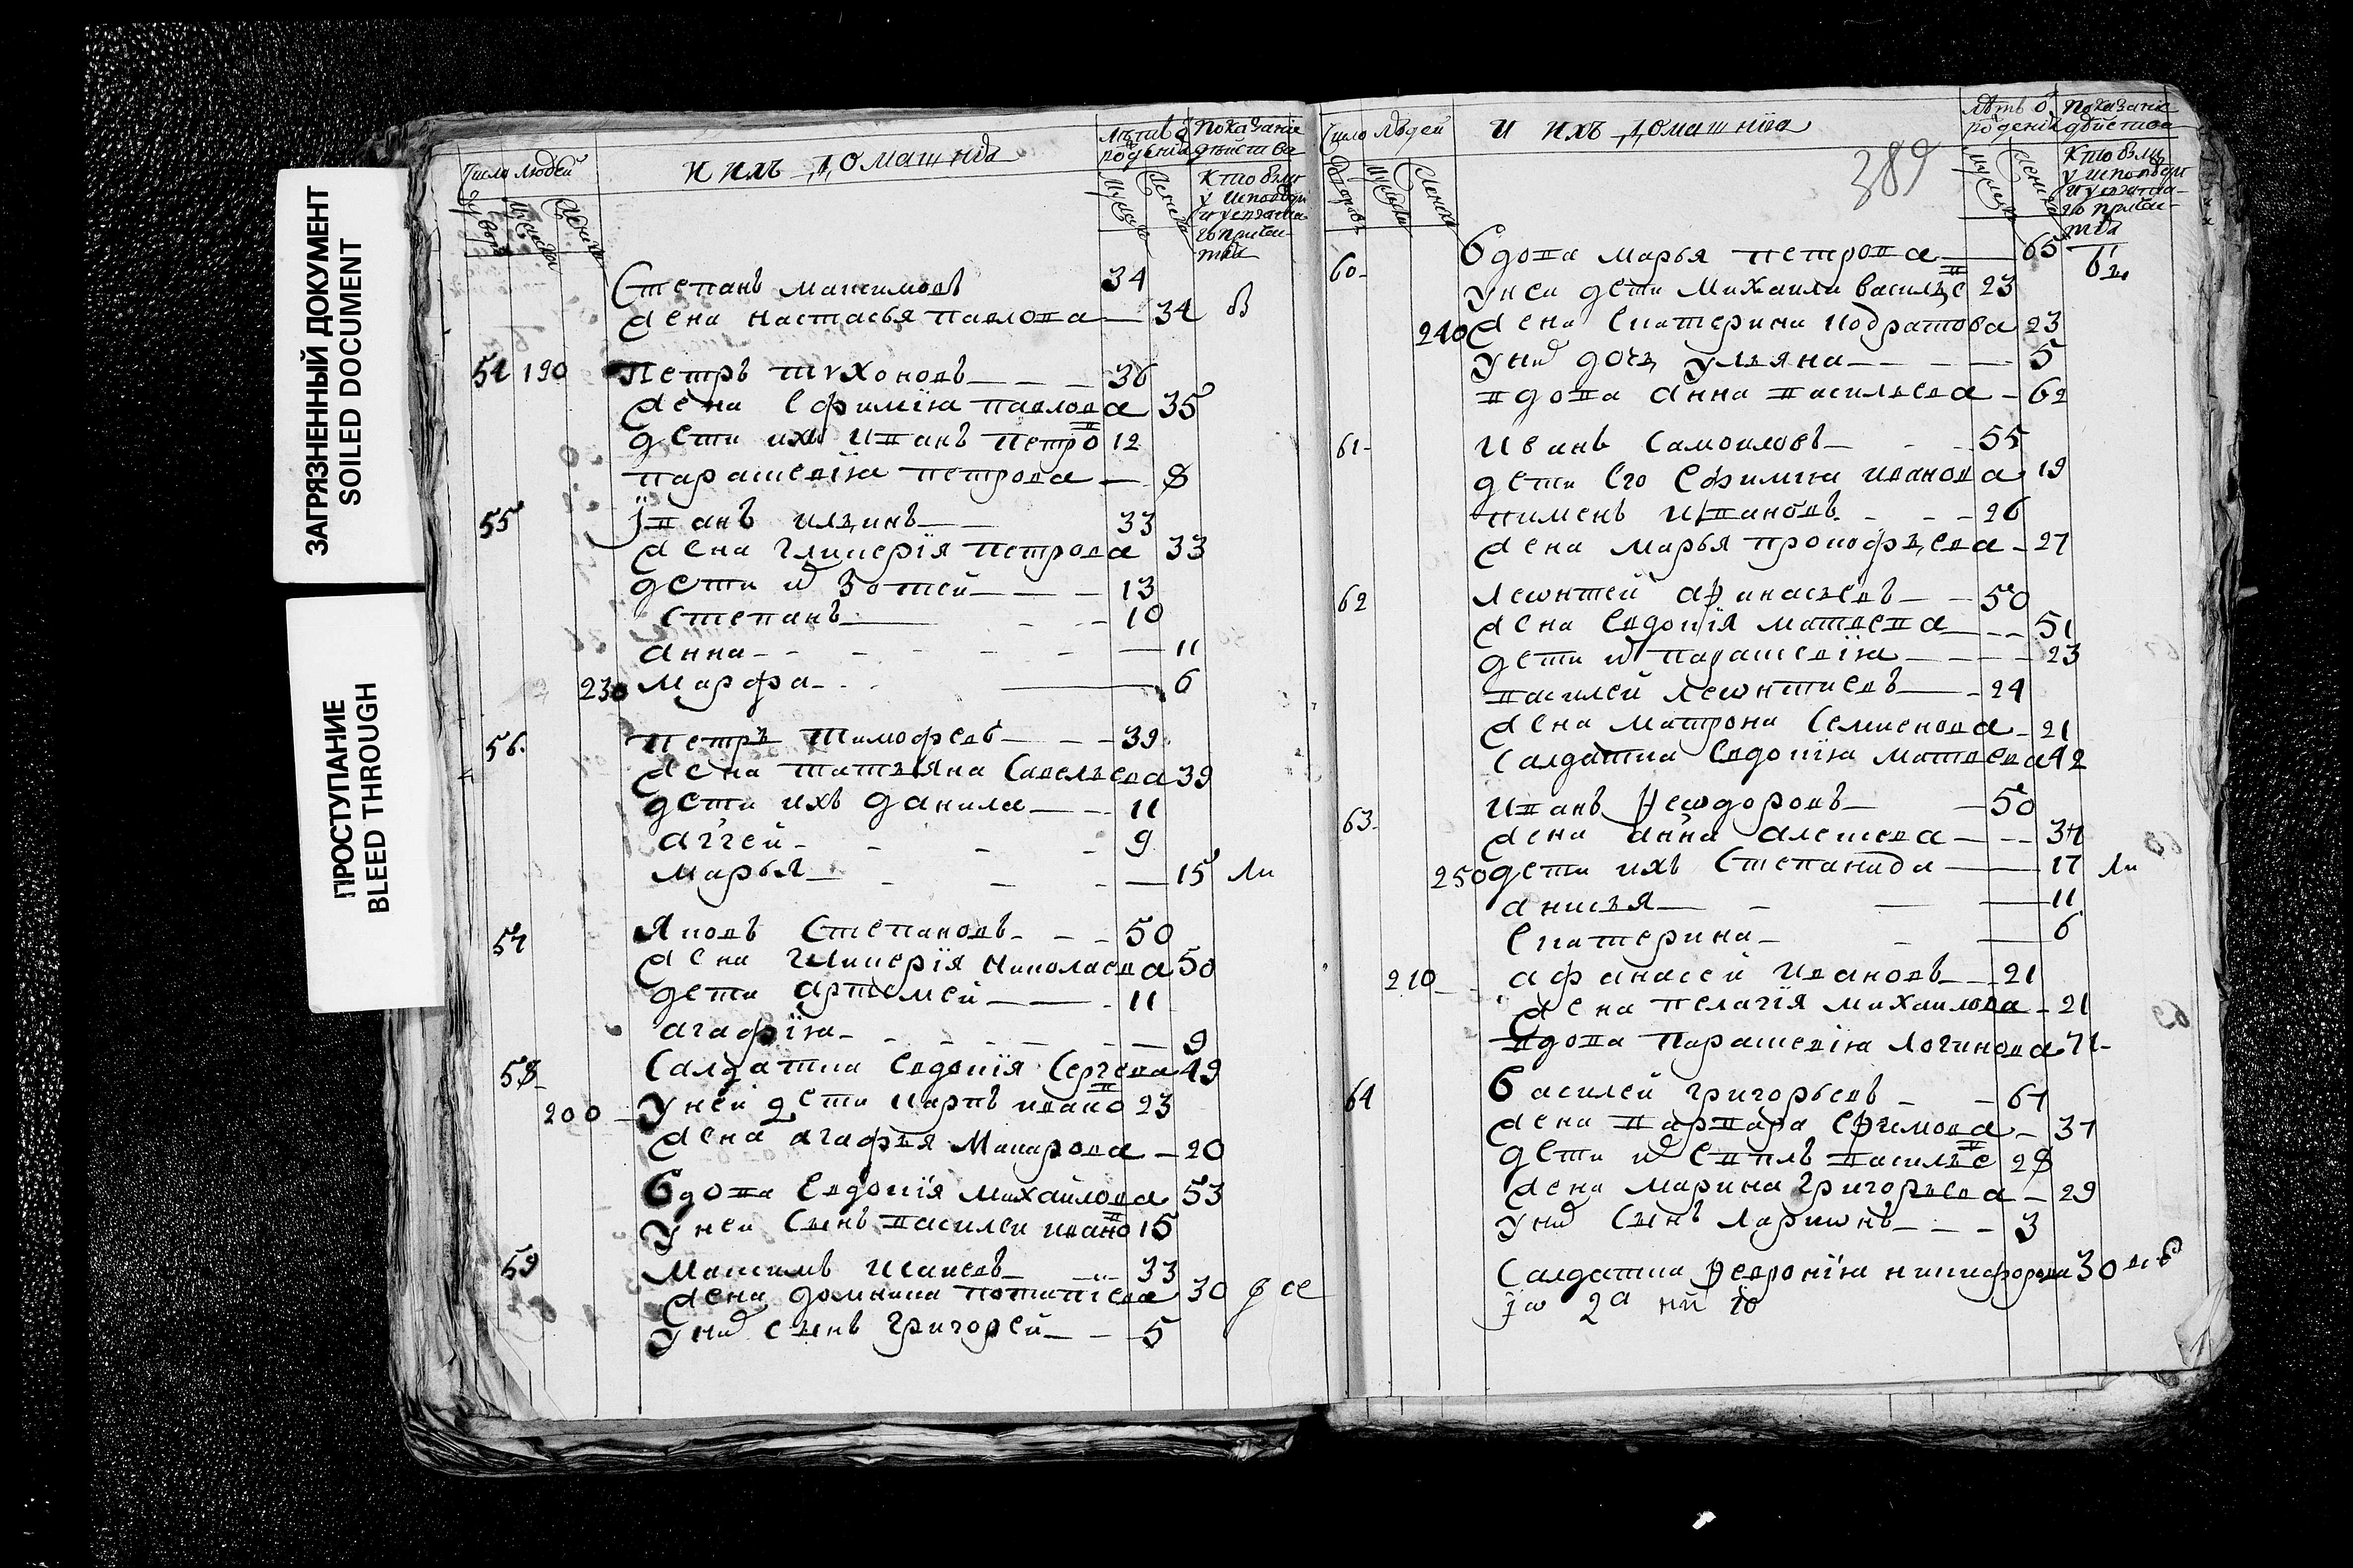 ЗАГРЯЗНЕННЫЙ ДОКУМЕНТ
SOILED DOCUMENT
ПРОСТУПАНИЕ
BLEED THROUGH
Число людей
и ихъ домашнїа
Лѣтъ ѿ рожденїа
Показание дѣйства
Степанъ Максимовъ 34
жена Настасья Павлова — 34
54 190 Петръ Тихоновъ — — — 36
жена Ефимїа Павлова 35
дети ихъ Иванъ Петро 12
Парасмевїа Петрова — 8
55 Иванъ Илинъ — — 33
жена Гликерїя Петрова 33
дети их Зотей — — — 13
Степанъ — — — 10
Анна — — — — 11
230 Марфа — — 6
56. Петръ Тимофеевъ — — — 39
жена Татьяна Савельева 39
дети ихъ Данила — — 11
Аггей — — — 9
Марья — — — 15
57 Яковъ Степановъ — — — 50
жена Гликерїя Николаева 50
дети Артемей — — — 11
Агафїа — — — — 9
58 Салдатка Евдокїя Сергеева 49
200 — У ней дети Карпъ Ивано 23
жена Агафья Макарова — 20
Вдова Евдокїя Михайлова 53
У ней сынъ Василей Ивано 15
59 Максимъ Исаковъ — — 33
жена Домника Потапїева 30
У них сынъ Григорей — — 5
Число людей
и ихъ домашнїа
Лѣтъ ѿ рожденїа
Показание дѣйства
389
60 — Вдова Марья Петрова — 65
У неи дети Михаила Василье 23
240 жена Екатерина Кодратова 23
У них дочь Ульяна — — — 5
вдова Анна Васильева — 62
61 — Иванъ Самоиловъ — — 55
дети его Ефимїа Иванова 19
Пимень Ивановъ — — — 26
жена Марья Прокофьева — 27
62 Леѡнтей Афанасьевъ — — 50
жена Евдокїя Матвеева — — — 51
дети их Парасмевїа — — — 23
Василей Леѡнтиевъ — — 24
жена Матрона Семиенова — 21
Салдатка Евдокїа Матвеева 42
63 — Иванъ Феѡдоровъ — — 50
жена Анна Алексеева — — — 34
250 дети ихъ Степанида — — 17
Анисья — — — — 11
Екатерина — — — 6
210 — Афанасей Ивановъ — — 21
жена Пелагїя Михаилова — 21
Вдова Парасмевїа Логинова 71 —
64 Василей Григорьевъ — — 67
жена Варвара Ефимова — 37
дети их Василье 28
жена Марина Григорьева — 29
У них сынъ Ларионъ — — — 3
Салдатка Февронїа Никифорова 30